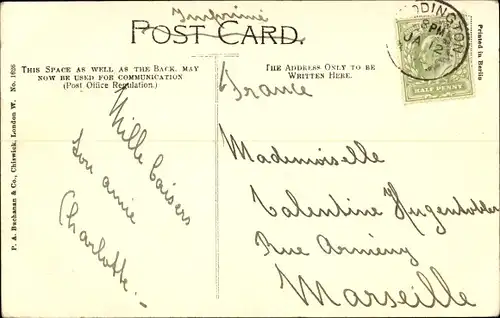 Imprimé
POST CARD.
THIS SPACE AS WELL AS THE BACK, MAY
NOW BE USED FOR COMMUNICATION
(Post Office Regulation.)
THE ADDRESS ONLY TO BE
WRITTEN HERE.
P. A. Buchanan & Co., Chiswick, London W. No. 1626
Mille baisers
Ton amie
Charlotte.
France
Mademoiselle
Valentine Hugentobler
Rue Armény
Marseille
DDINGTON
HALF PENNY
Printed in Berlin